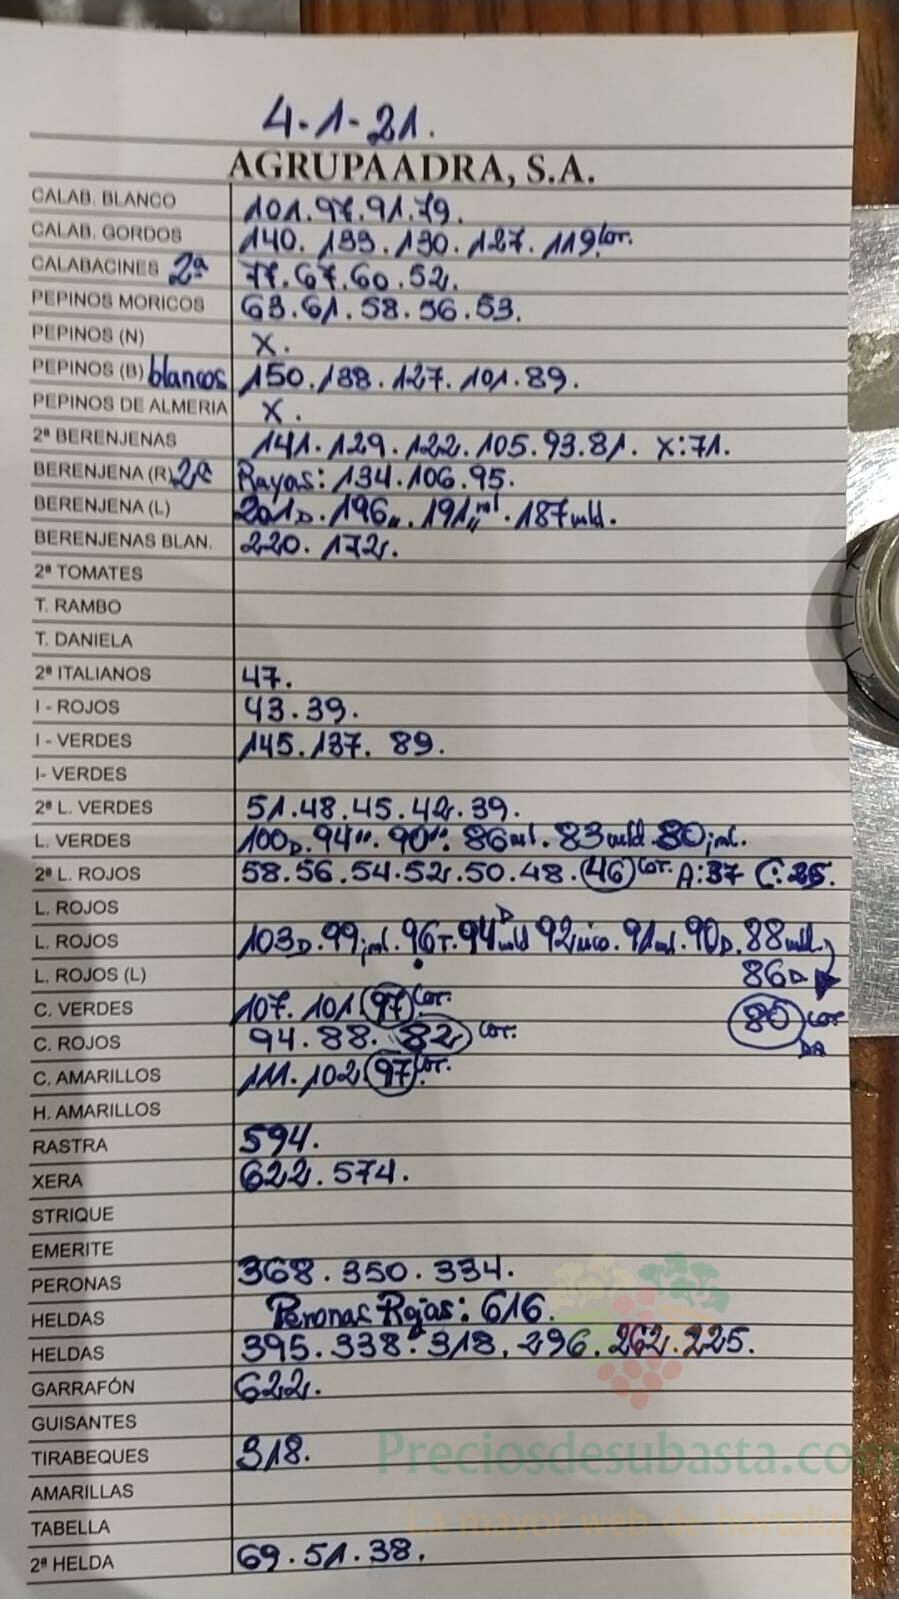 4-1-21.
AGRUPAADRA, S.A.
CALAB. BLANCO 101.97.91.79.
CALAB. GORDOS 140.133.130.127.119 cor.
CALABACINES 2ª 77.67.60.52.
PEPINOS MORICOS 63.61.58.56.53.
PEPINOS (N) X.
PEPINOS (B) blancos 150.138.127.101.89.
PEPINOS DE ALMERIA X.
2ª BERENJENAS 141.129.122.105.93.81. X:71.
BERENJENA (R) 2ª Rayas: 134.106.95.
BERENJENA (L) 201D.196".191" ml.187 mld.
BERENJENAS BLAN. 220.172.
2ª TOMATES
T. RAMBO
T. DANIELA
2ª ITALIANOS 47.
I - ROJOS 43.39.
I - VERDES 145.137. 89.
I- VERDES
2ª L. VERDES 51.48.45.42.39.
L. VERDES 100D.94".90". 86ml.83mld.80 ml.
2ª L. ROJOS 58.56.54.52.50.48.46 cor. A:37 C:25.
L. ROJOS
L. ROJOS 103D.99 ml.96T.94 D mld 92 .91ml.90D.88mld.
L. ROJOS (L) 86D
C. VERDES 107.101 97 cor. 80 cor DA
C. ROJOS 94.88. 82 cor.
C. AMARILLOS 111.102 97 cor.
H. AMARILLOS
RASTRA 594.
XERA 622.574.
STRIQUE
EMERITE
PERONAS 368.350.334.
HELDAS Peronas Rojas: 616.
HELDAS 395.338.318.296.262.225.
GARRAFÓN 622.
GUISANTES
TIRABEQUES 318.
Preciosdesubasta.com
AMARILLAS
La mayor web de hortalizas
TABELLA
2ª HELDA 69.51.38.